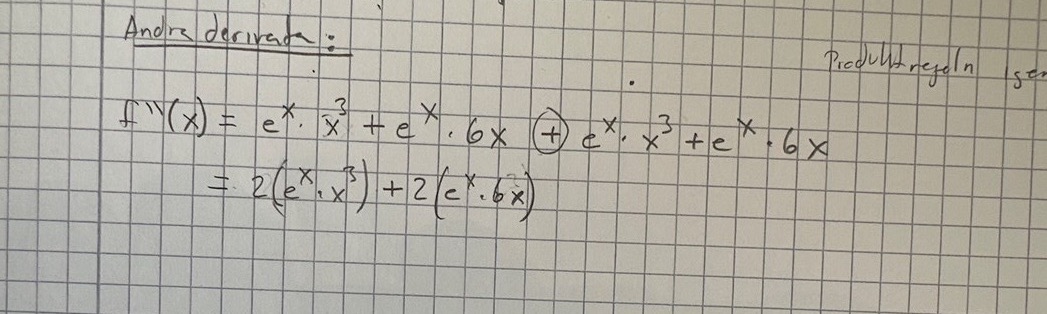 Andra derivata:
Produktregeln igen
f'''(x) = e^x · x^3 + e^x · 6x + e^x · x^3 + e^x · 6x
= 2(e^x · x^3) + 2(e^x · 6x)